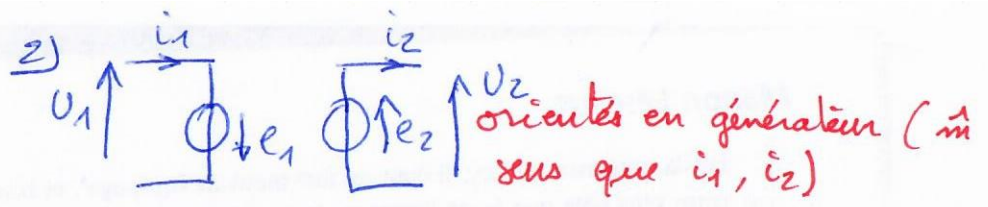 2) i1 i2
U1 e1 e2 U2
orientés en générateur ( m̂
sens que i1, i2)